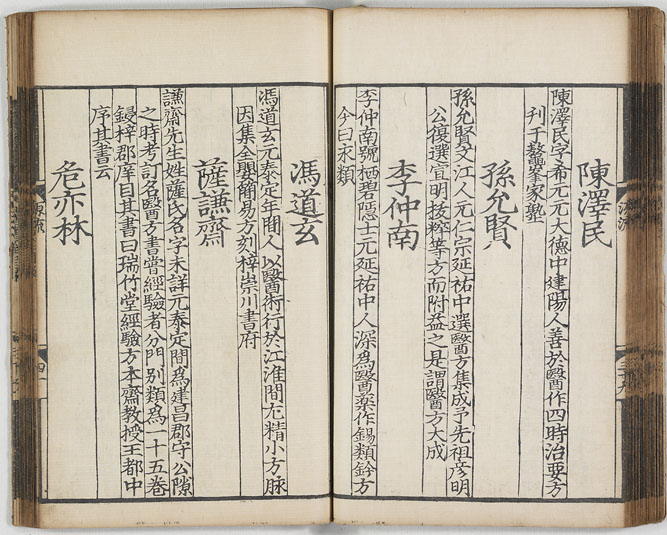 陳澤民
陳澤民字希元元大德中建陽人善於醫作四時治要方
刊于鰲峯家塾
孫允賢
孫允賢文江人元仁宗延祐中選醫方集成予先祖彦明
公復選宣明拔粹等方而附益之是謂醫方大成
李仲南
李仲南號栖碧隱士元延祐中人深爲醫藥作錫類鈐方
今曰永類
馮道玄
馮道玄元泰定年間人以醫術行於江淮間尤精小方脉
因集全嬰簡易方刻梓崇川書府
薩謙齋
謙齋先生姓薩氏名字未詳元泰定間爲建昌郡守公隙
之時考訂名醫方書嘗經驗者分門別類爲一十五卷
鋟梓郡庠目其書曰瑞竹堂經驗方本齋教授王都中
序其書云
危亦林